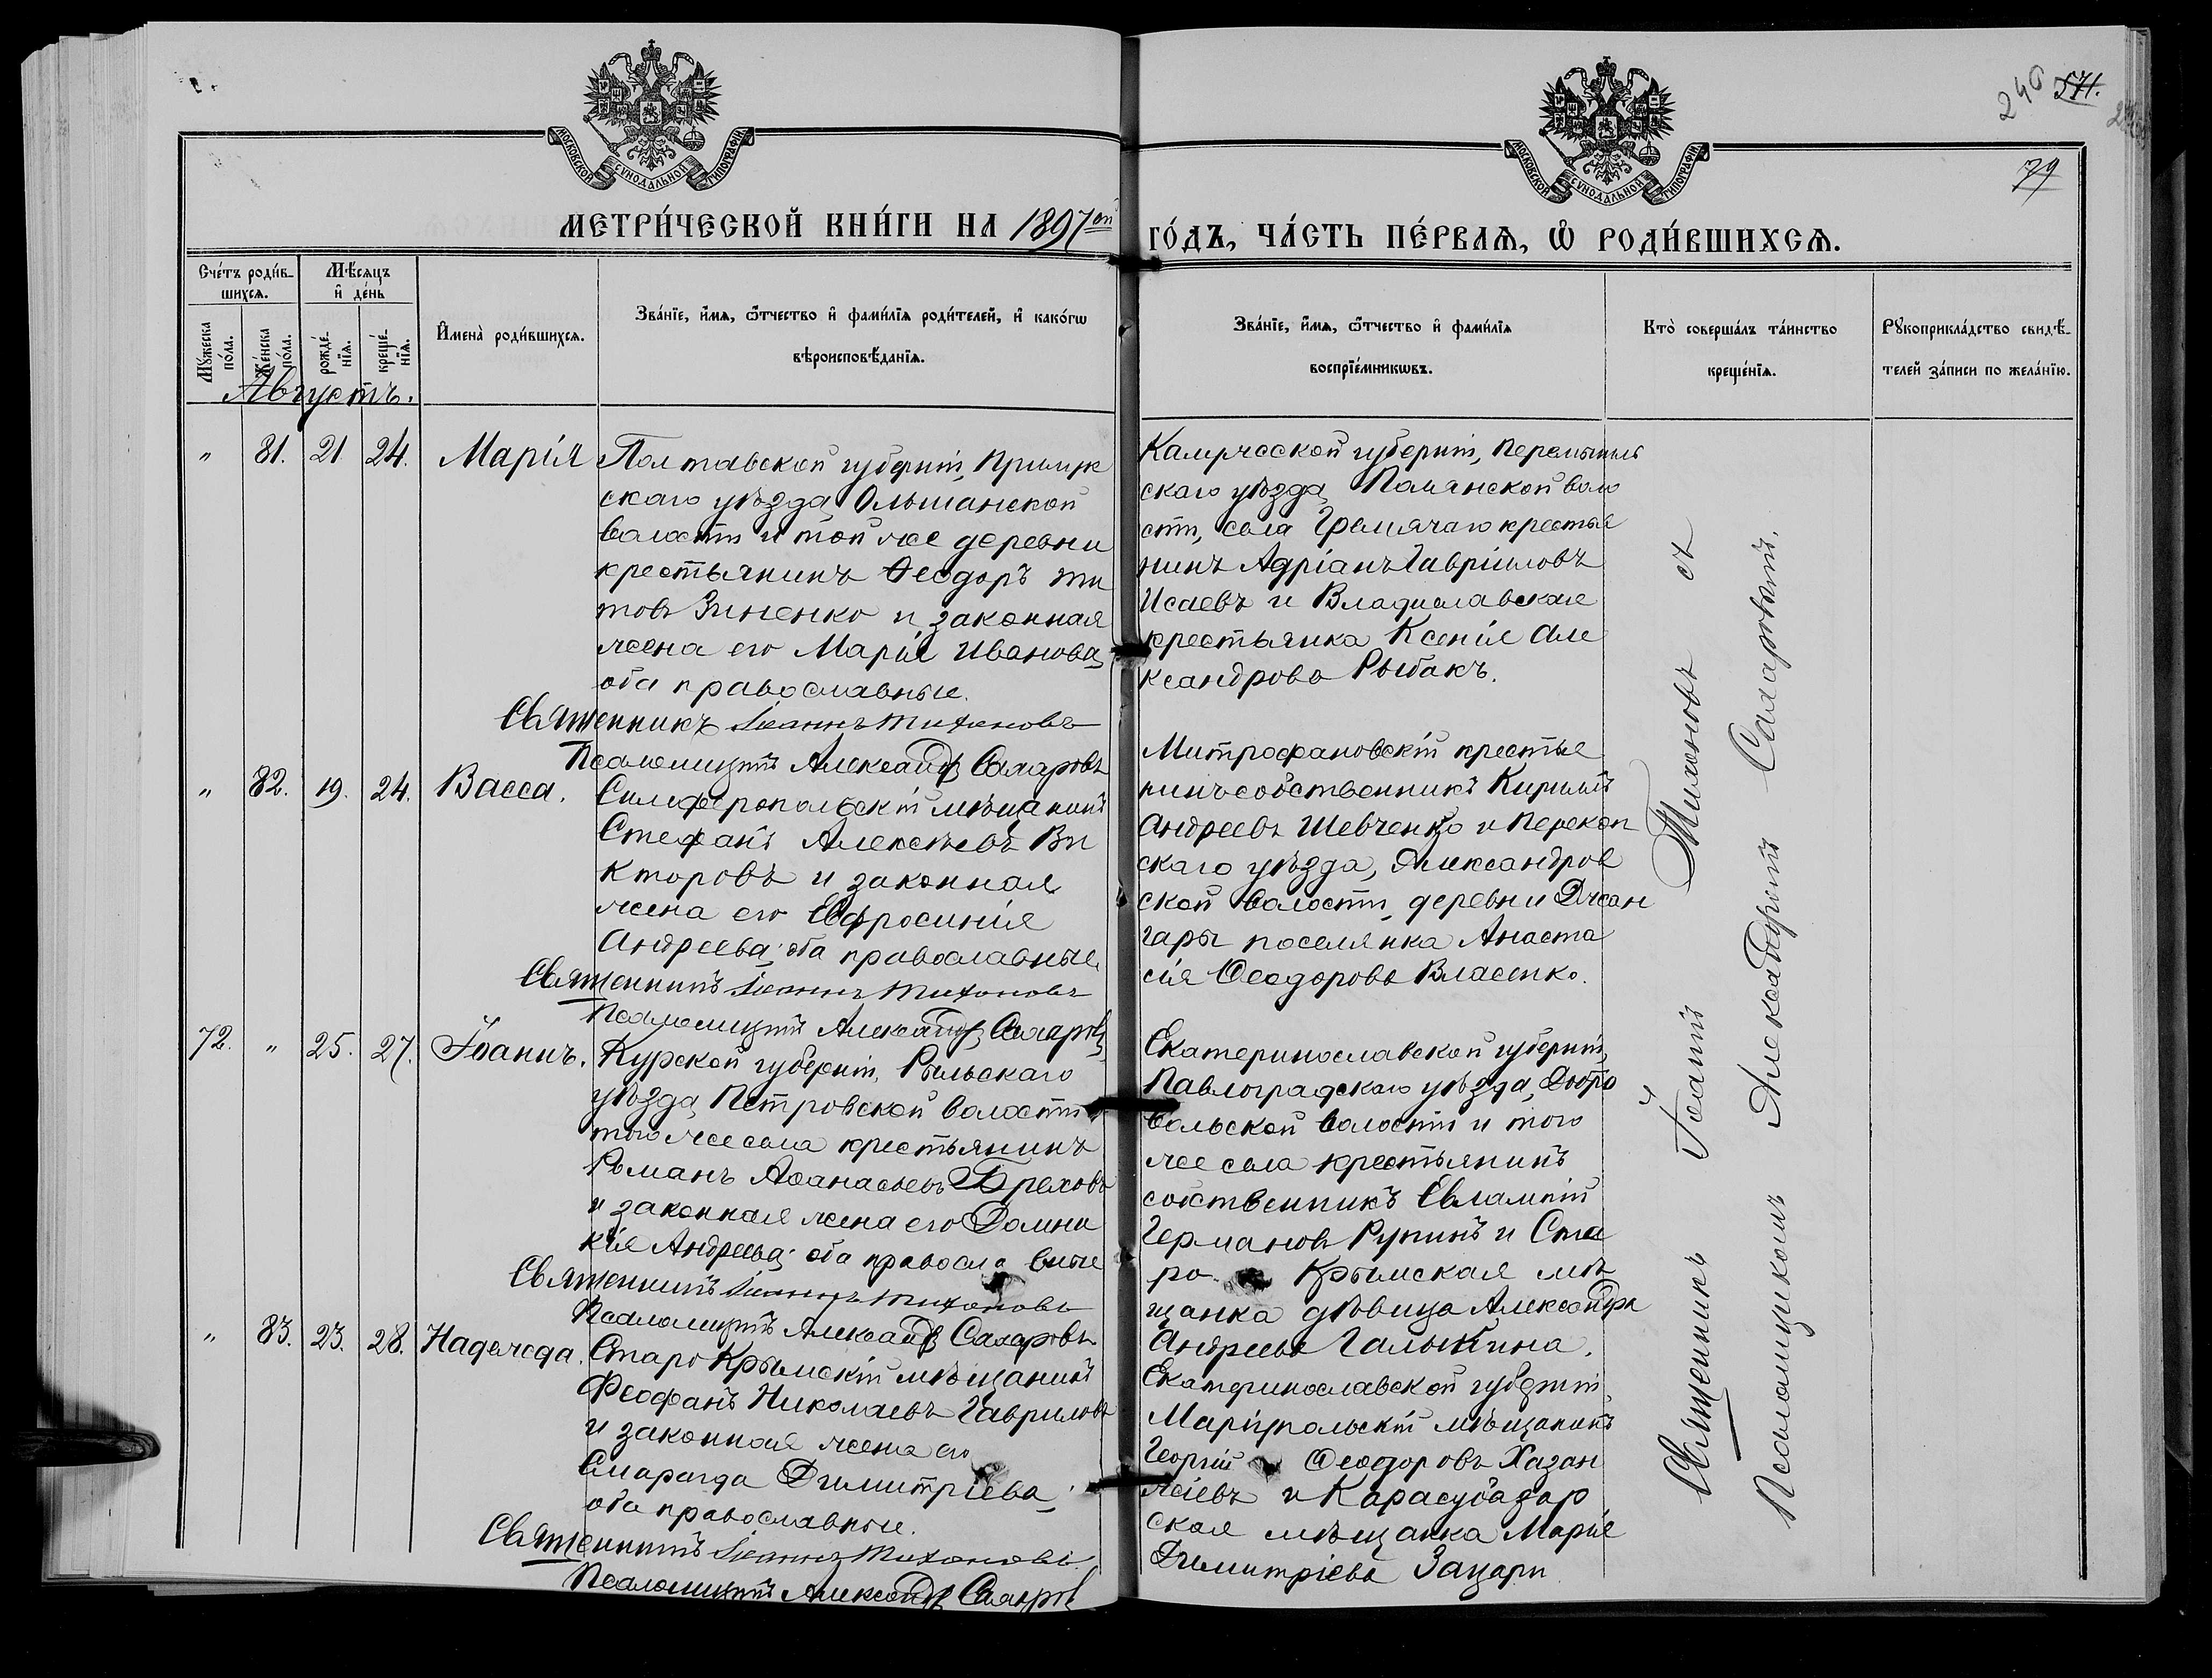 МОСКОВСКОЙ СѴНОДАЛЬНОЙ ТИПОГРАФІИ
МОСКОВСКОЙ СѴНОДАЛЬНОЙ ТИПОГРАФІИ
240 571.
79
МЕТРИ́ЧЕСКОЙ КНИ́ГИ НА 1897ой ГО́ДЪ, ЧА́СТЬ ПЕ́РВАѦ, Ѡ҆ РОДИ́ВШИХСѦ.
Сче́тъ роди́в-
шихсѧ.
Мѣ́сѧцъ
и҆ де́нь
Мꙋ́жеска
по́ла.
Же́нска
по́ла.
рожде́-
нїѧ.
креще́-
нїѧ.
И҆мена̀ роди́вшихсѧ.
Зва́нїе, и҆́мѧ, ѻ҆́тчество и҆ фами́лїѧ роди́телей, и҆ како́гѡ
вѣроисповѣ́данїѧ.
Зва́нїе, и҆́мѧ, ѻ҆́тчество и҆ фами́лїѧ
воспрїе́мникѡвъ.
Кто̀ соверша́лъ та́инство
креще́нїѧ.
Рꙋкоприкла́дство свидѣ́-
телей за́писи по жела́нїю.
Августъ.
" 81. 21 24. Марія
Полтавской губерніи, Прилук
скаго уѣзда Ольшанской
волости и той же деревни
крестьянинъ Ѳеодоръ Ти
товъ Зиненко и законная
жена его Марія Иванова,
оба православные.
Священникъ Іоаннъ Тихоновъ
Псаломщикъ Александръ Сахаровъ
Калужской губерніи, Перемышль
скаго уѣзда, Полянской воло
сти, села Гремячаго крестья
нинъ Адріанъ Гавріиловъ
Исаевъ и Владиславская
крестьянка Ксенія Але
ксандрова Рыбакъ.
" 82. 19. 24. Васса.
Симферопольскій мѣщанинъ
Стефанъ Алексѣевъ Ви
кторовъ и законная
жена его Евфросинія
Андреева; оба православные.
Священникъ Іоаннъ Тихоновъ
Псаломщикъ Александръ Сахаровъ
Митрофановскій крестья
нинъ собственникъ Кириллъ
Андреевъ Шевченко и Перекоп
скаго уѣзда, Александров
ской волости, деревни Джан
гары поселянка Анаста
сія Ѳеодорова Власенко.
72. " 25. 27. Іоаннъ.
Курской губерніи, Рыльскаго
уѣзда, Петровской волости
того же села крестьянинъ
Романъ Аѳанасьевъ Бреховъ
и законная жена его Домни
кія Андреева; оба православные
Священникъ Іоаннъ Тихоновъ
Псаломщикъ Александръ Сахаровъ
Екатеринославской губерніи,
Павлоградскаго уѣзда, Добро
вольской волости и того
же села крестьянинъ
собственникъ Евлампій
Германовъ Рупинъ и Ста
ро Крымская мѣ
щанка дѣвица Александра
Андреева Галыкина.
" 83. 23. 28. Надежда.
Старо Крымскій мѣщанинъ
Феофанъ Николаевъ Гавриловъ
и законная жена его
Смарагда Димитріева;
оба православные.
Священникъ Іоаннъ Тихоновъ
Псаломщикъ Александръ Сахаровъ
Екатеринославской губерніи,
Маріупольскій мѣщанинъ
Георгій Ѳеодоровъ Хазан
жіевъ и Карасубазар
ская мѣщанка Марія
Димитріева Зацари
Священникъ Іоаннъ Тихоновъ съ
Псаломщикомъ Александромъ Сахаровымъ.